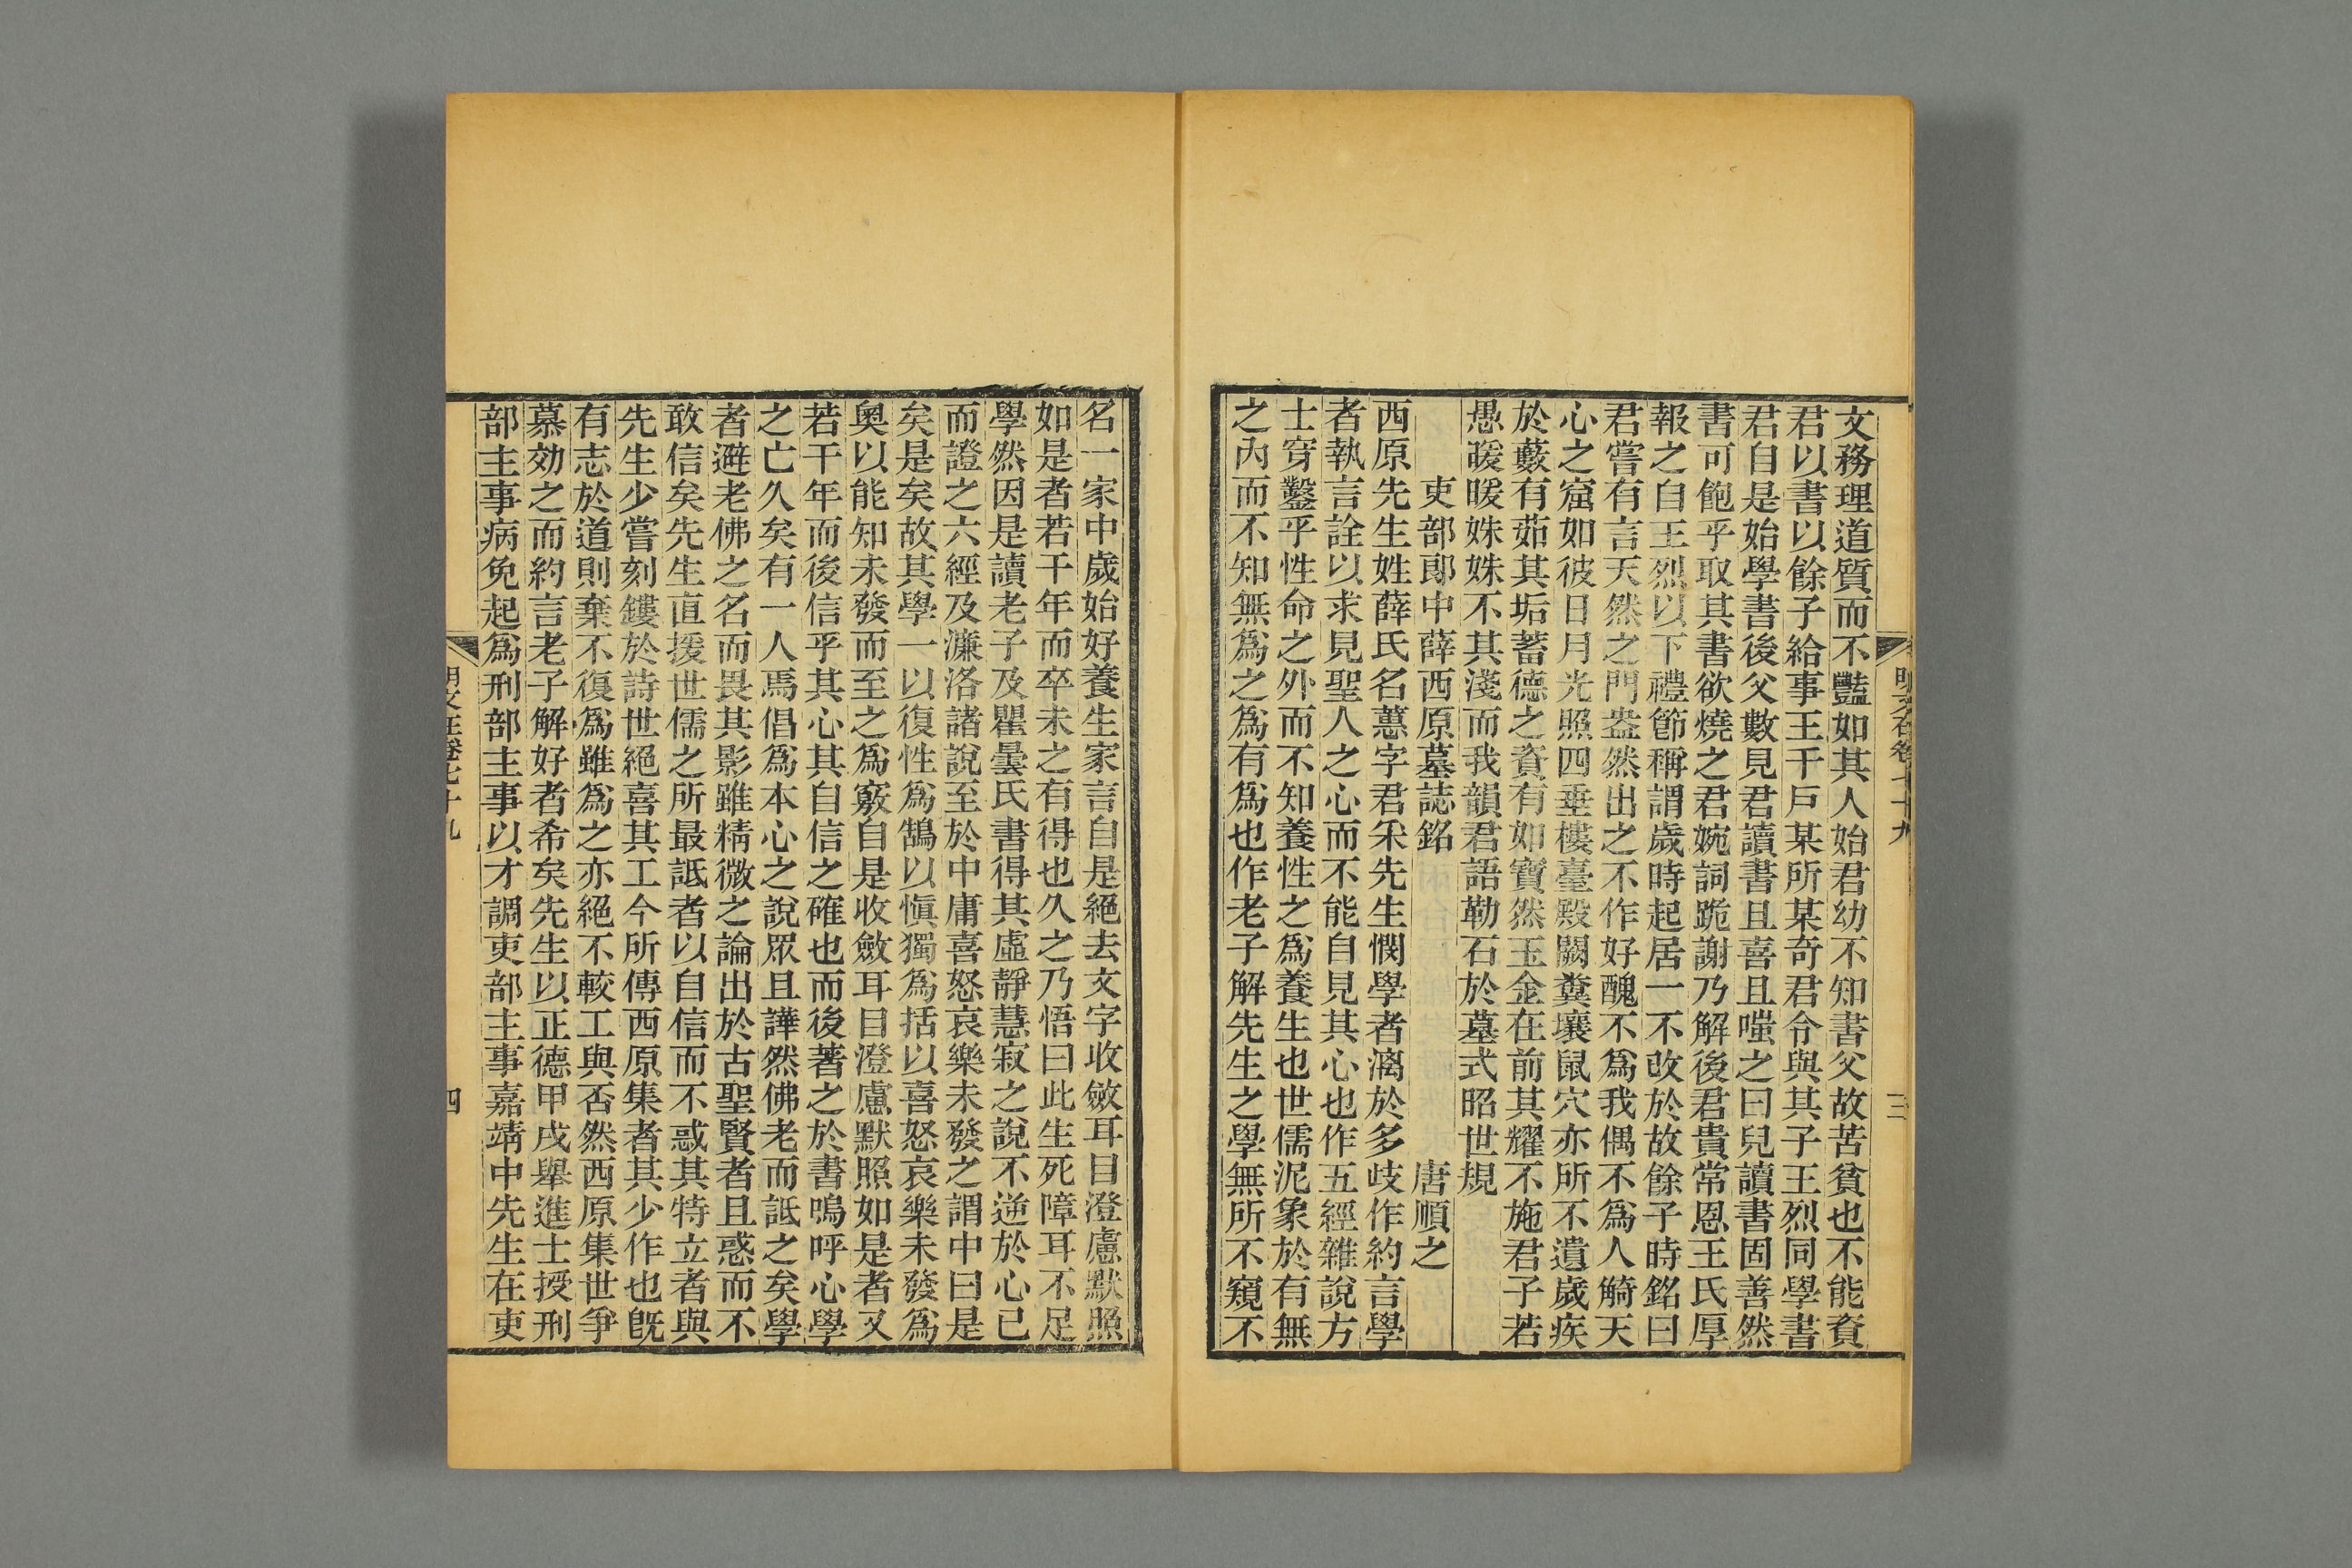 文務理道質而不豔如其人始君幼不知書父故苦貧也不能資
君以書以餘子給事王千戶某所某奇君令與其子王烈同學書
君自是始學書後父數見君讀書且喜且嗤之曰兒讀書固善然
書可飽乎取其書欲燒之君婉詞跪謝乃解後君貴常恩王氏厚
報之自王烈以下禮節稱謂歲時起居一不改於故餘子時銘曰
君嘗有言天然之門盎然出之不作好醜不為我偶不為人觭天
心之窟如彼日月光照四垂樓臺殿闕糞壤鼠穴亦所不遺歲疾
於藪有茹其垢蓄德之資有如寶然玉金在前其耀不施君子若
愚暖暖姝姝不其淺而我韻君語勒石於墓式昭世規
吏部郎中薛西原墓誌銘 唐順之
西原先生姓薛氏名蕙字君采先生憫學者漓於多歧作約言學
者執言詮以求見聖人之心而不能自見其心也作五經雜說方
士穿鑿乎性命之外而不知養性之為養生也世儒泥象於有無
之內而不知無為之為有為也作老子解先生之學無所不窺不
名一家中歲始好養生家言自是絕去文字收斂耳目澄慮默照
如是者若干年而卒未之有得也久之乃悟曰此生死障耳不足
學然因是讀老子及瞿曇氏書得其虛靜慧寂之說不逆於心已
而證之六經及濂洛諸說至於中庸喜怒哀樂未發之謂中曰是
矣是矣故其學一以復性為鵠以慎獨為括以喜怒哀樂未發為
奧以能知未發而至之為竅自是收斂耳目澄慮默照如是者又
若干年而後信乎其心其自信之確也而後著之於書嗚呼心學
之亡久矣有一人焉倡為本心之說眾且譁然佛老而詆之矣學
者避老佛之名而畏其影雖精微之論出於古聖賢者且惑而不
敢信矣先生直援世儒之所最詆者以自信而不惑其特立者與
先生少嘗刻鏤於詩世絕喜其工今所傳西原集者其少作也既
有志於道則棄不復為雖為之亦絕不較工與否然西原集世爭
慕効之而約言老子解好者希矣先生以正德甲戌舉進士授刑
部主事病免起為刑部主事以才調吏部主事嘉靖中先生在吏
明文在卷七十九
三
明文在卷七十九
四